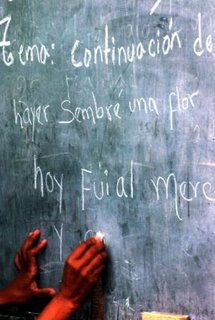 tema: continuación de
hayer Sembré una flor
hoy Fui al Merc
y